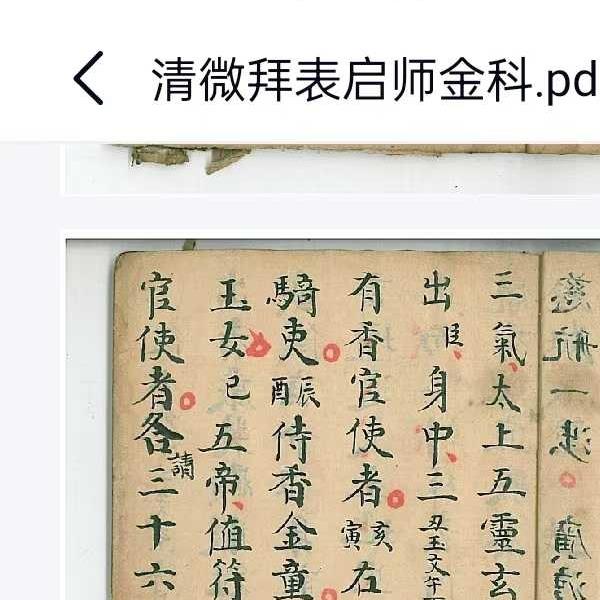 清微拜表启师金科.pd
三氣太上五靈玄
出臣身中三丑玉文午
有香官使者亥寅右
騎吏辰酉侍香金童
玉女巳五帝值符
官使者各請三十六